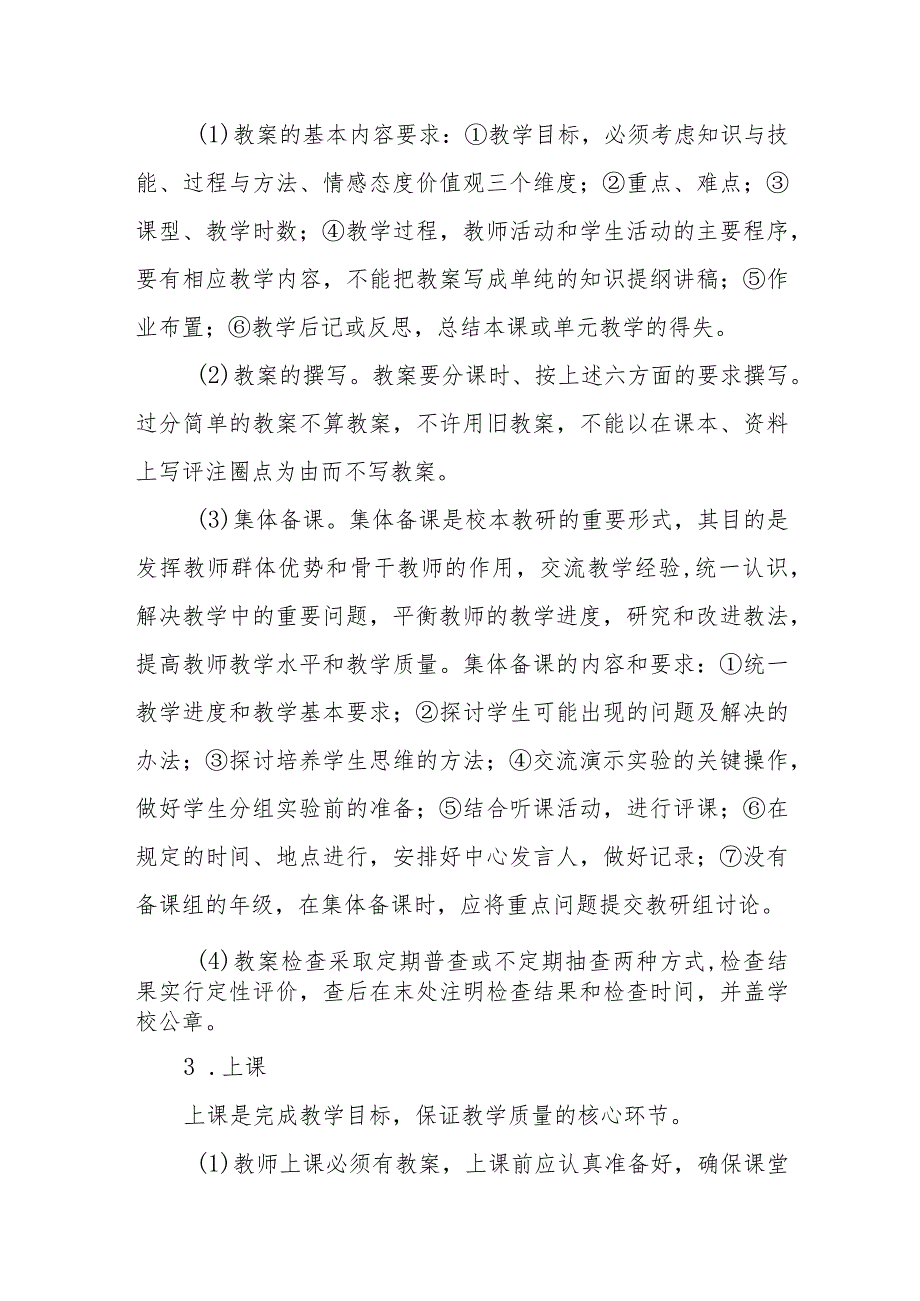 (1)教案的基本内容要求：①教学目标，必须考虑知识与技
能、过程与方法、情感态度价值观三个维度；②重点、难点；③
课型、教学时数；④教学过程，教师活动和学生活动的主要程序，
要有相应教学内容，不能把教案写成单纯的知识提纲讲稿；⑤作
业布置；⑥教学后记或反思，总结本课或单元教学的得失。
(2)教案的撰写。教案要分课时、按上述六方面的要求撰写。
过分简单的教案不算教案，不许用旧教案，不能以在课本、资料
上写评注圈点为由而不写教案。
(3)集体备课。集体备课是校本教研的重要形式，其目的是
发挥教师群体优势和骨干教师的作用，交流教学经验,统一认识，
解决教学中的重要问题，平衡教师的教学进度，研究和改进教法，
提高教师教学水平和教学质量。集体备课的内容和要求：①统一
教学进度和教学基本要求；②探讨学生可能出现的问题及解决的
办法；③探讨培养学生思维的方法；④交流演示实验的关键操作，
做好学生分组实验前的准备；⑤结合听课活动，进行评课；⑥在
规定的时间、地点进行，安排好中心发言人，做好记录；⑦没有
备课组的年级，在集体备课时，应将重点问题提交教研组讨论。
(4)教案检查采取定期普查或不定期抽查两种方式,检查结
果实行定性评价，查后在末处注明检查结果和检查时间，并盖学
校公章。
3 .上课
上课是完成教学目标，保证教学质量的核心环节。
(1)教师上课必须有教案，上课前应认真准备好，确保课堂